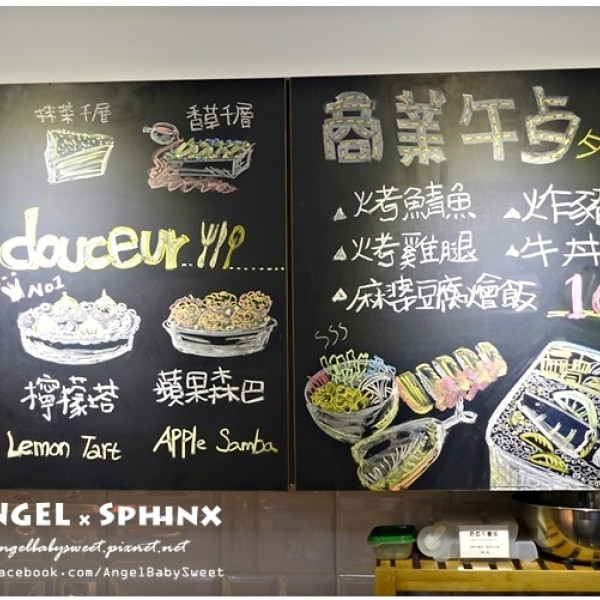 抹茶千層
香草千層
douceur
NO1
檸檬塔
蘋果森巴
Lemon Tart
Apple Samba
商業午占
烤鯖魚
炸豬
烤雞腿
牛丼
麻婆豆腐燴飯
NGEL x SPHINX
ngelbabysweet.pixnet.net
acebook.com/AngelBabySweet